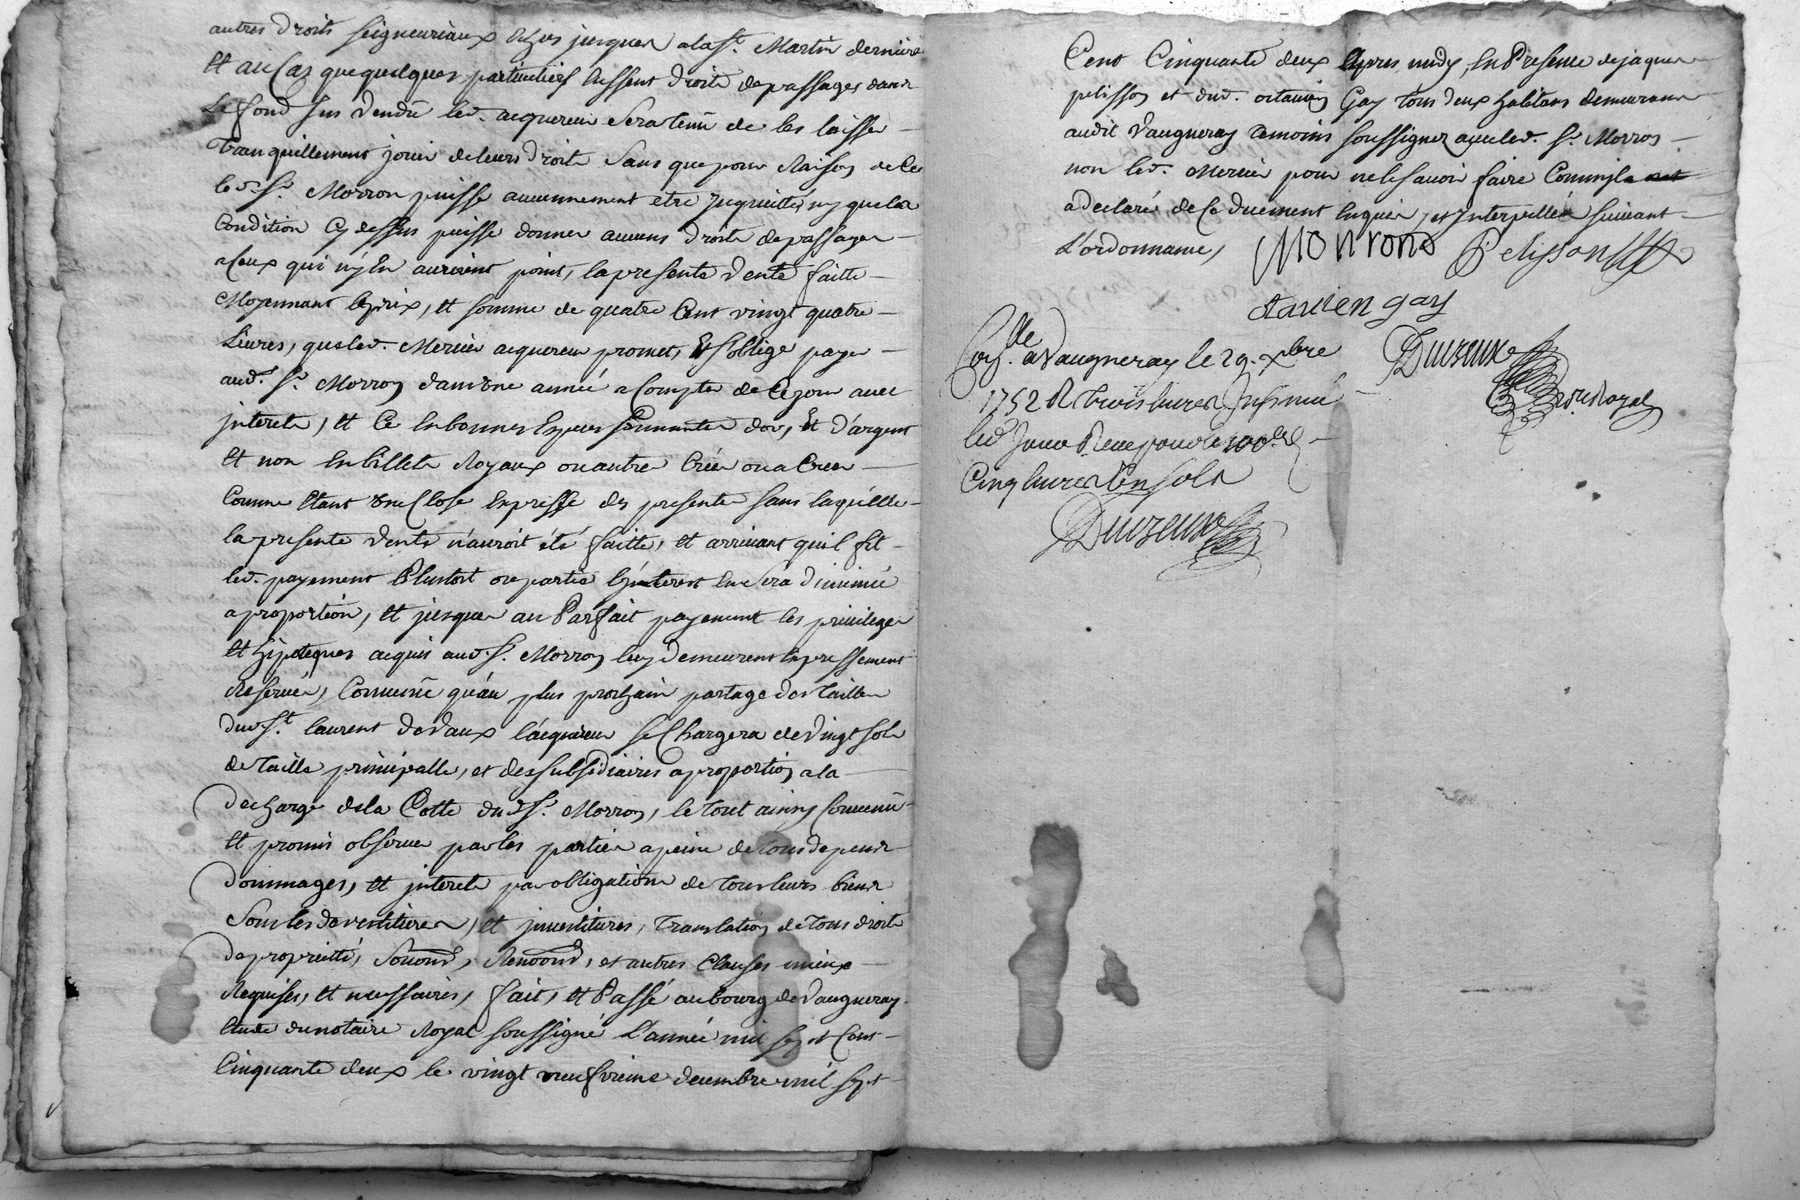 autres droits seigneuriaux échus jusques a la St. Martin derniere
Et au Cas que quelques particuliers Eussent droits de passages dans
Le fond sus Vendu led. acquereur Sera tenü de les laisser
Tranquillement jouir de leurs droits Sans que pour Raison de Ce
led. Sr. Morron puisse aucunnement etre Jnquietté ny que la
Condition Cy dessus puisse donner aucuns droits de passages
a Ceux qui n'y En auroient point, la presente Vente faitte
Moyennant le prix, et somme de quatre Cent vingt quatre
Livres, que led. Mercier acquereur promet, Et s'oblige payer
aud. Sr. Morron dans une année a Compter de Ce jour avec
jnterets, et Ce En bonnes Especes Sonnantes d'or, Et d'argent
Et non En billets Royaux ou autres Créés ou a Creer
Comme Etant une Close Expresse des presentes sans laquelle
la presente Vente n'auroit été faitte, et arrivant qu'il fit
led. payement Plustost ou partie L'jnterest En Sera diminué
a proportion, et jusques au Parfait payement les privileges
Et hipoteques acquis aud. Sr. Morron luy demeurent Expressement
Reservés, Convenü qu'au plus prochain partage des Tailles
dud. St. laurent de Vaux l'acquereur se Chargera de Vingt sols
de Taille principalle, et des subsidiaires a proportion a la
decharge de la Cotte dud. Sr. Morron, le tout ainsy Convenü
Et promis observer par les parties a peine de tous depens
dommages, et jnterets par obligation de tous leurs biens
Sous les devestitures, et jnvestitures, Translation de tous droits
de proprietté, Soumd, Renoond, et autres Clauses mieux
Requises, et necessaires, fait, et Passé au bourg de Vaugneray
Etude du notaire Royal soussigné L'année mil sept Cent
Cinquante deux le vingt neufvieme decembre mil sept
Cent Cinquante deux Apres midy, En Presence de jaques
pelisson et dud. octavien Gay tous deux habitans demeurans
audit Vaugneray temoins soussignez avec led. Sr. Morron
non led. Mercier pour ne le savoir faire Comme il
a declaré de Ce duement Enquis, et Jnterpellés suivant
L'ordonnance,
Monrond Pelisson
octavien gay
Duvzeux
No.re Royal
Con.lle a Vaugneray le 29. xbre
1752 R. trois livres
led. Jour Receu pour le 100e.
Cinq livres sols
Duvzeux